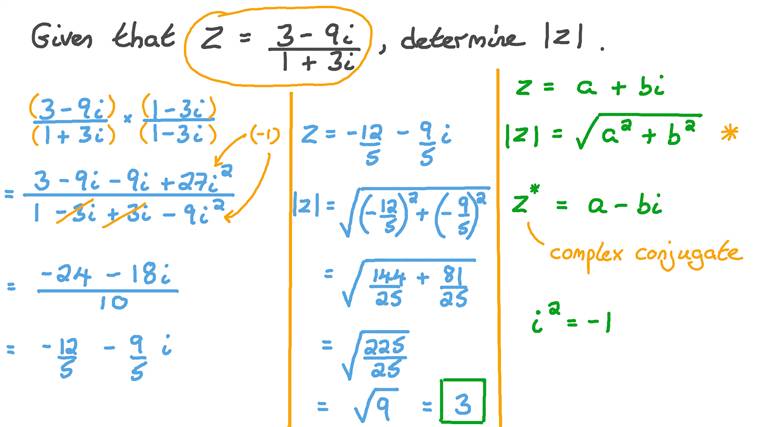 Given that z = (3 - 9i)/(1 + 3i), determine |z|.
(3 - 9i)/(1 + 3i) × (1 - 3i)/(1 - 3i)
(-1)
= (3 - 9i - 9i + 27i²)/(1 - 3i + 3i - 9i²)
= (-24 - 18i)/10
= -12/5 - 9/5 i
z = -12/5 - 9/5 i
|z| = √((-12/5)² + (-9/5)²)
= √(144/25 + 81/25)
= √(225/25)
= √9 = 3
z = a + bi
|z| = √(a² + b²) *
z* = a - bi
complex conjugate
i² = -1